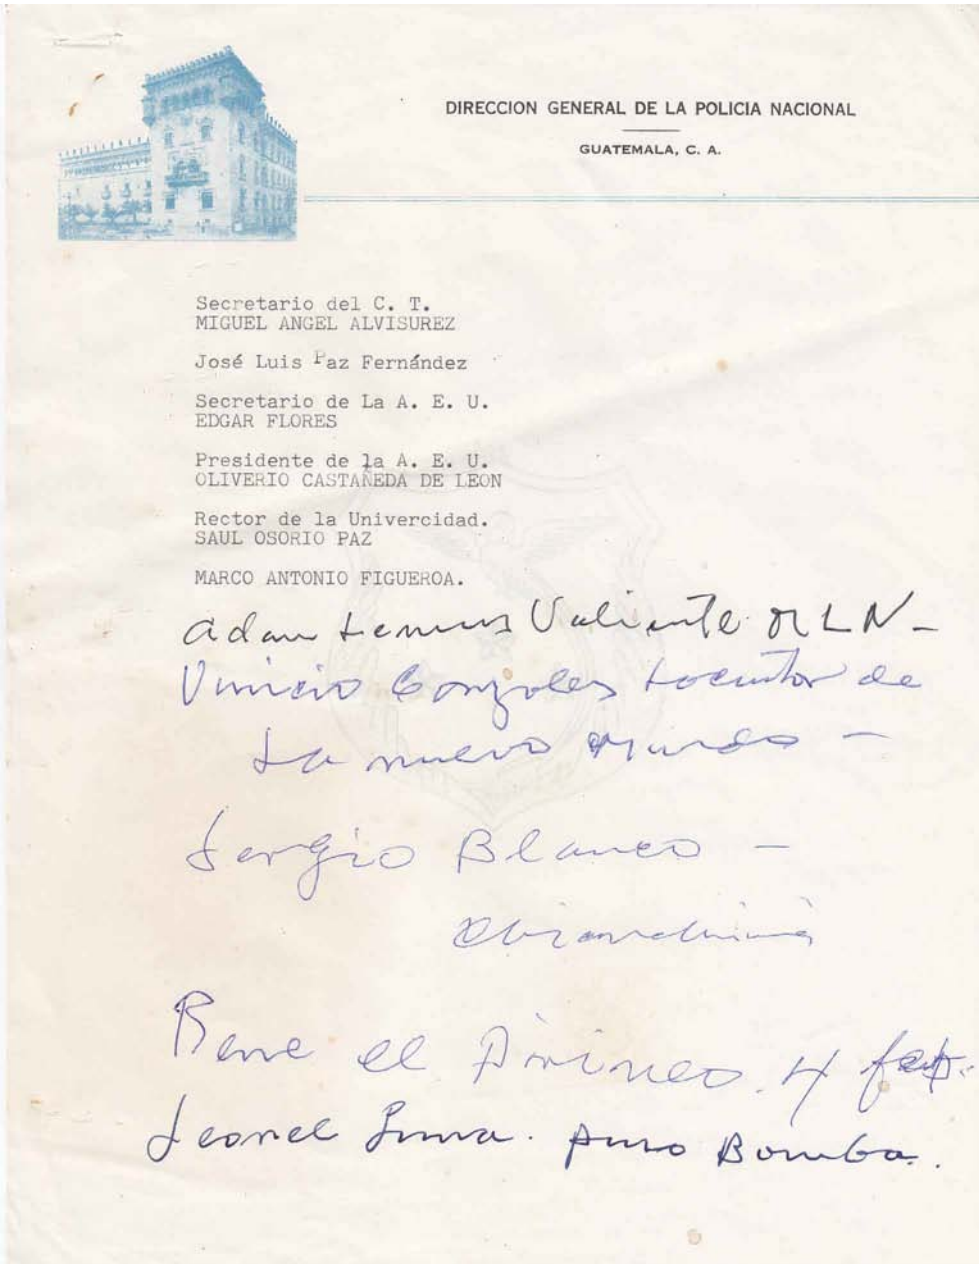 DIRECCION GENERAL DE LA POLICIA NACIONAL
GUATEMALA, C. A.
Secretario del C. T.
MIGUEL ANGEL ALVISUREZ
José Luis Paz Fernández
Secretario de La A. E. U.
EDGAR FLORES
Presidente de la A. E. U.
OLIVERIO CASTAÑEDA DE LEON
Rector de la Univercidad.
SAUL OSORIO PAZ
MARCO ANTONIO FIGUEROA.
Adan Lemus Valiente MLN-
Vinicio Gonzales Locutor de
La nuevo Mundo -
Sergio Blanco -
Rene el
Leonel Bomba.